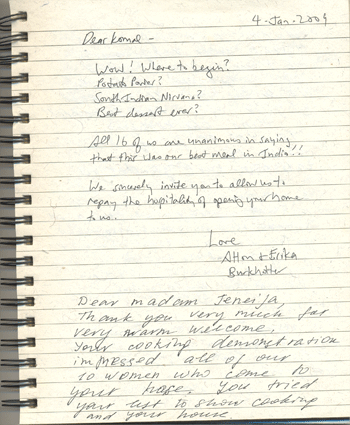 4 - Jan - 2009
Dear Komal -
Wow! Where to begin?
Potato Power?
South Indian Nirvana?
Best dessert ever?
All 16 of us are unanimous in saying
that this was our best meal in India!!
We sincerely invite you to allow us to
repay the hopitality of opening your home
to us.
Love
& Erika
Dear madam
Thank you very much for
very warm welcome.
Your cooking demonstration
impressed all of our
10 women who come to
your hope. You tried
your best to show cooking
and your house.